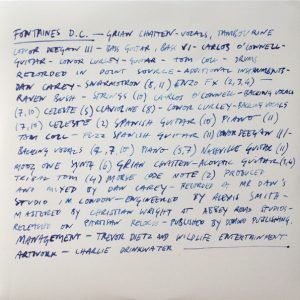 FONTAINES D.C. — GRIAN CHATTEN - VOCALS, TAMBOURINE
CONOR DEEGAN III - BASS GUITAR, BASS VI - CARLOS O'CONNELL -
GUITAR - CONOR CURLEY - GUITAR - TOM COLL - DRUMS
RECORDED IN POINT SOURCE - ADDITIONAL INSTRUMENTS -
DAN CAREY - SWARMATRON (8, 11) ENZO FX (2,3,4) —
RAVEN BUSH - STRINGS (11) CARLOS O'CONNELL - BACKING VOCALS
(7,10) CELESTE (5) CLAVIOLINE (8) - CONOR CURLEY - BACKING VOCALS
(7,10) CELESTE (2) SPANISH GUITAR (10) PIANO (11)
TOM COLL - FUZZ SPANISH GUITAR (11) CONOR DEEGAN III -
BACKING VOCALS (2,7,10) PIANO (5,7) NASHVILLE GUITAR (11)
MOOG ONE SYNTH (6) GRIAN CHATTEN - ACOUSTIC GUITAR (3,4)
(4) MORSE CODE NOTE (2) PRODUCED
AND MIXED BY DAN CAREY - RECORDED AT MR DAN'S
STUDIO IN LONDON - ENGINEERED BY ALEXIS SMITH -
MASTERED BY CHRISTIAN WRIGHT AT ABBEY ROAD STUDIOS -
RELEASED ON PARTISAN RECORDS - PUBLISHED BY DOMINO PUBLISHING.
MANAGEMENT - TREVOR DIETZ AND WILDLIFE ENTERTAINMENT
ARTWORK - CHARLIE DRINKWATER